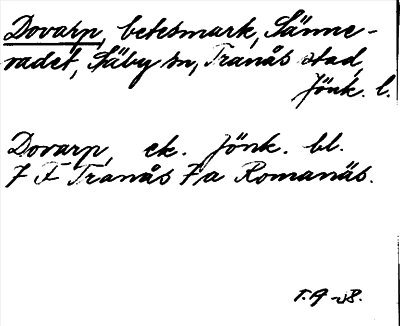 Dovarp, betesmark, Sänne-
vadet, Säby sn, Tranås stad,
Jönk. l.
Dovarp, ek. Jönk. bl.
7 F Tranås 7a Romanäs.
T.A -38.